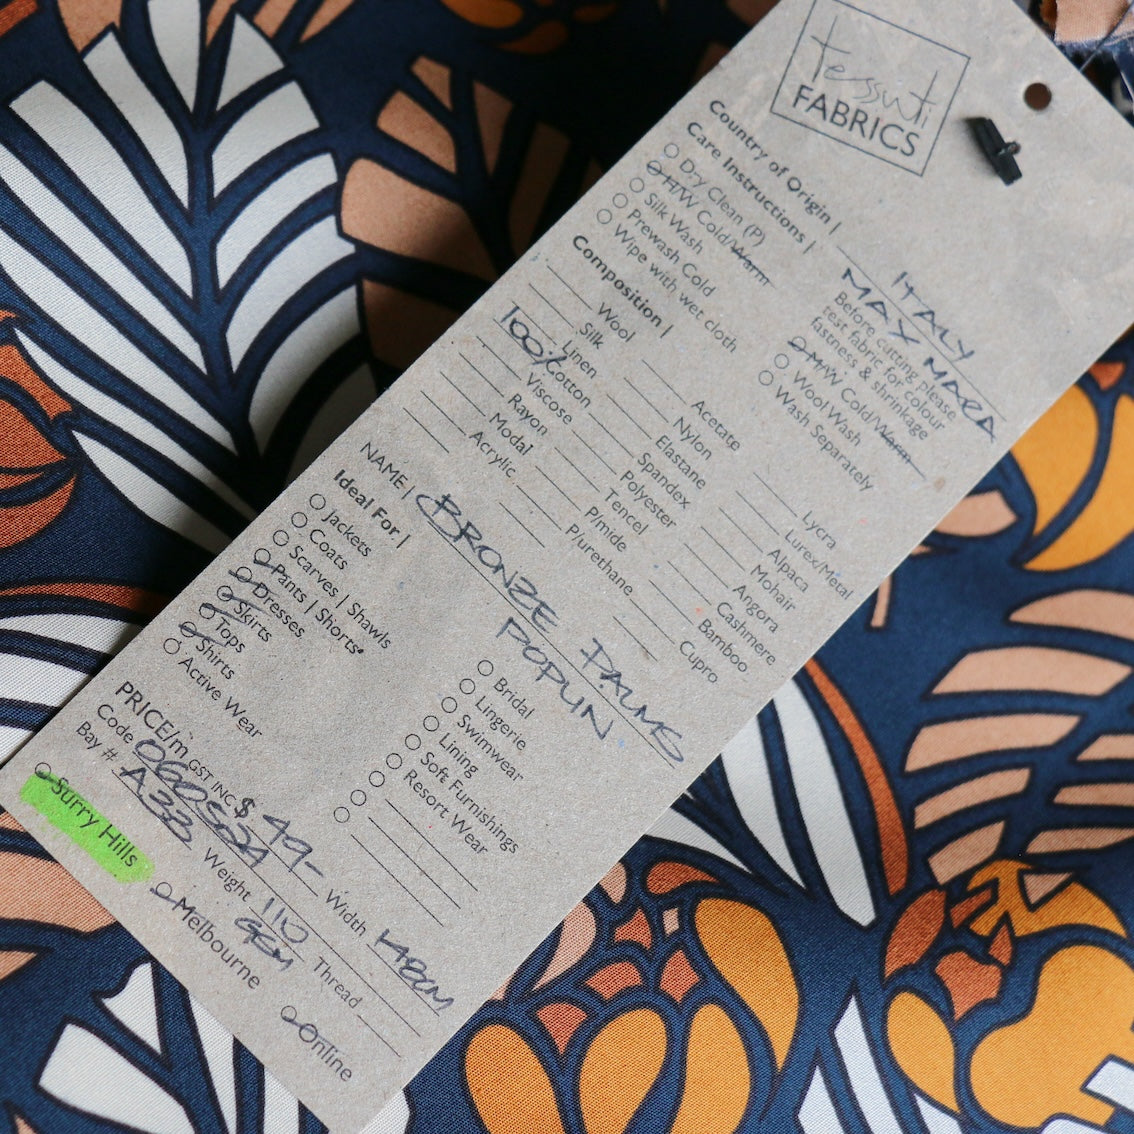 tessuti
FABRICS
Country of Origin | ITALY
MAX MARA
Care Instructions |
Before cutting please
test fabric for colour
fastness & shrinkage
Dry Clean (P)
H/W Cold/Warm
Silk Wash
Prewash Cold
Wipe with wet cloth
M/W Cold/Warm
Wool Wash
Wash Separately
Composition |
Wool
Silk
Linen
100% Cotton
Viscose
Rayon
Modal
Acrylic
Acetate
Nylon
Elastane
Spandex
Polyester
Tencel
P/mide
P/urethane
Lycra
Lurex/Metal
Alpaca
Mohair
Angora
Cashmere
Bamboo
Cupro
NAME | BRONZE PALMS
POPLIN
Ideal For |
Jackets
Coats
Scarves | Shawls
Pants | Shorts
Dresses
Skirts
Tops
Shirts
Active Wear
Bridal
Lingerie
Swimwear
Lining
Soft Furnishings
Resort Wear
PRICE/m GST INC $ 49-
Width 148CM
Code
Weight 110 GSM
Thread
Bay # A33
Surry Hills
Melbourne
Online